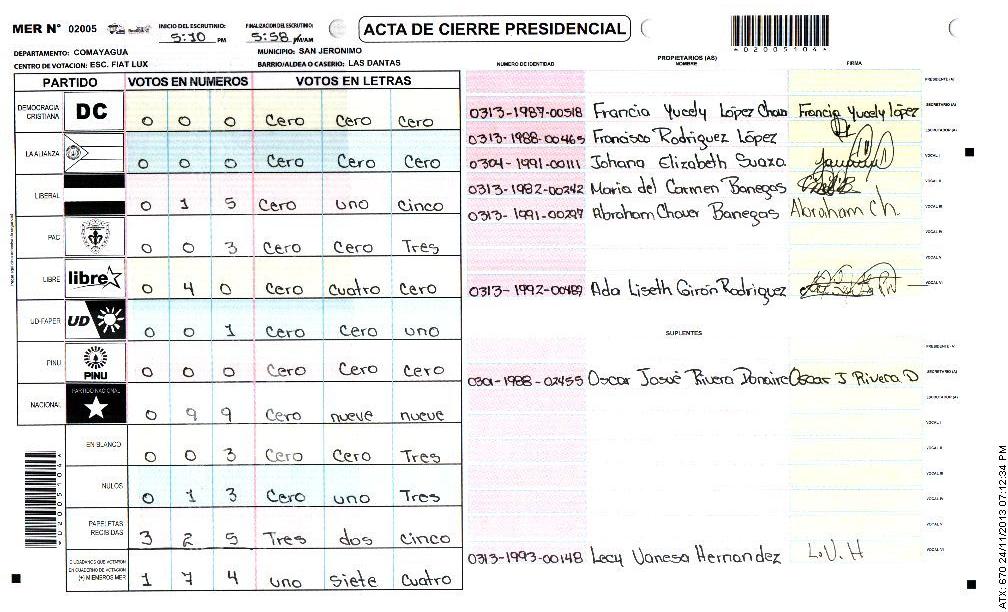 MER N° 02005 INICIO DEL ESCRUTINIO: 5:10 PM FINALIZACION DEL ESCRUTINIO: 5:58 PM/AM ACTA DE CIERRE PRESIDENCIAL
*02005104*
DEPARTAMENTO: COMAYAGUA MUNICIPIO: SAN JERONIMO
CENTRO DE VOTACION: ESC. FIAT LUX BARRIO/ALDEA O CASERIO: LAS DANTAS
PARTIDO VOTOS EN NUMEROS VOTOS EN LETRAS
DEMOCRACIA CRISTIANA DC 0 0 0 Cero Cero Cero
LA ALIANZA 0 0 0 Cero Cero Cero
LIBERAL 0 1 5 Cero uno Cinco
PAC 0 0 3 Cero Cero Tres
LIBRE libre 0 4 0 Cero cuatro Cero
UD-FAPER UD 0 0 1 Cero Cero uno
PINU PINU 0 0 0 Cero Cero Cero
NACIONAL PARTIDO NACIONAL 0 9 9 Cero nueve nueve
EN BLANCO 0 0 3 Cero Cero Tres
NULOS 0 1 3 Cero uno Tres
PAPELETAS RECIBIDAS 3 2 5 Tres dos cinco
CIUDADANOS QUE VOTARON EN CUADERNO DE VOTACION (+) MIEMBROS MER 1 7 4 uno siete cuatro
*02005104*
PROPIETARIOS (AS)
NUMERO DE IDENTIDAD NOMBRE FIRMA
PRESIDENTE (A)
0313-1987-00518 Francia Yucely López Chavez Francia Yucely López SECRETARIO (A)
0313-1988-00465 Francisco Rodriguez López ESCRUTADOR (A)
0304-1991-00111 Johana Elizabeth Suaza VOCAL I
0313-1982-00242 Maria del Carmen Banegas VOCAL II
0313-1991-00297 Abraham Chaver Banegas Abraham Ch. VOCAL III
VOCAL IV
VOCAL V
0313-1992-00489 Ada Liseth Girón Rodriguez VOCAL VI
SUPLENTES
PRESIDENTE (A)
0301-1988-02455 Oscar Josué Rivera Donaire Oscar J Rivera D SECRETARIO (A)
ESCRUTADOR (A)
VOCAL I
VOCAL II
VOCAL III
VOCAL IV
VOCAL V
0313-1993-00148 Lecy Vanesa Hernandez L.V.H VOCAL VI
ATX: 670 24/11/2013 07:12:34 PM